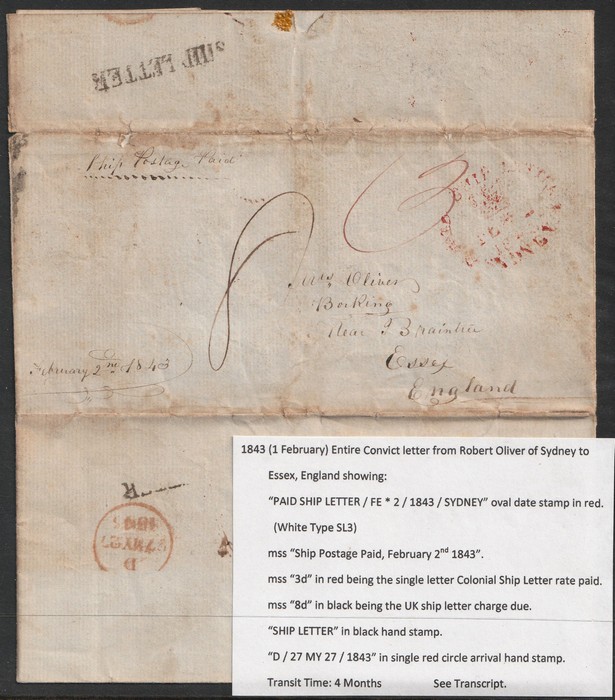 SHIP LETTER
Ship Postage Paid
8
3
Mrs Oliver
Bocking
Near Braintree
Essex
England
February 2nd 1843
D
27 MY 27
1843
1843 (1 February) Entire Convict letter from Robert Oliver of Sydney to
Essex, England showing:
“PAID SHIP LETTER / FE * 2 / 1843 / SYDNEY” oval date stamp in red.
(White Type SL3)
mss “Ship Postage Paid, February 2nd 1843”.
mss “3d” in red being the single letter Colonial Ship Letter rate paid.
mss “8d” in black being the UK ship letter charge due.
“SHIP LETTER” in black hand stamp.
“D / 27 MY 27 / 1843” in single red circle arrival hand stamp.
Transit Time: 4 Months See Transcript.